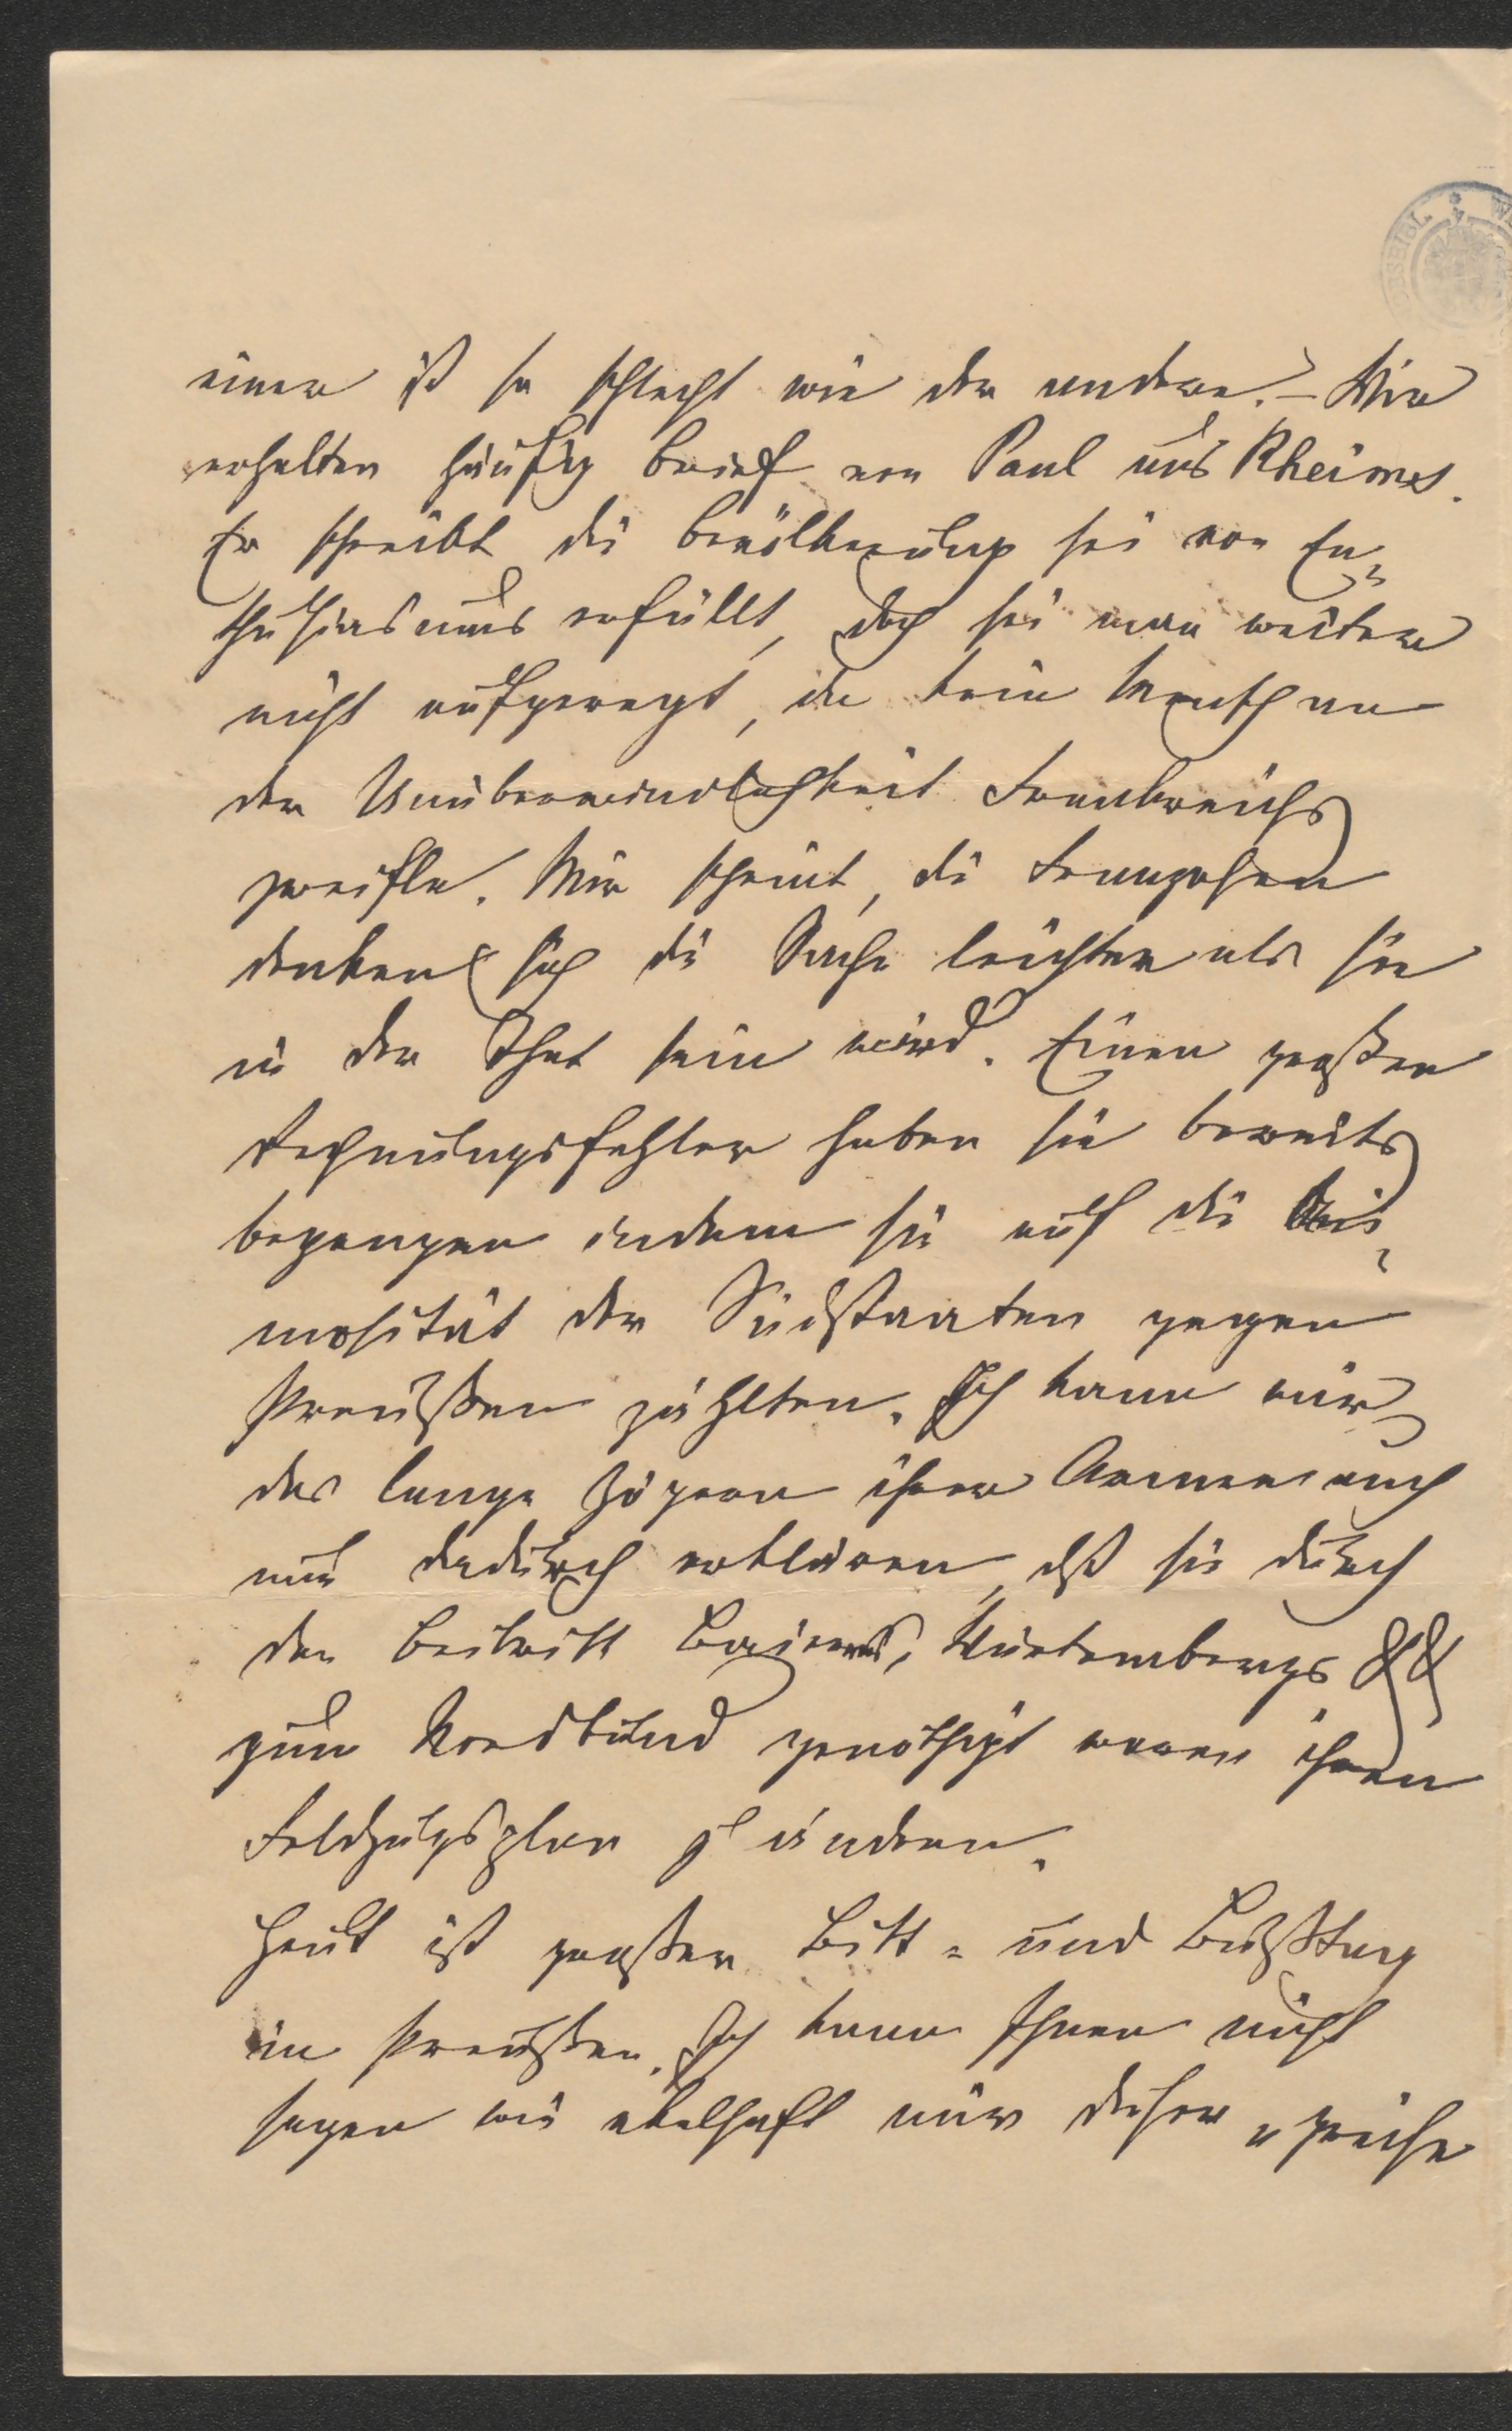 einer ist so schlecht wie der andere. – Wir
erhalten häufig Brief von Paul aus Rheims.
Er schreibt die Bevölkerung sei von En-
thusiasmus erfüllt, doch sei man weiter
nicht aufgeregt, da kein Mensch an
der Unüberwindlichkeit Frankreichs
zweifle. Mir scheint, die Franzosen
denken sich die Sache leichter als sie
in der That sein wird. Einen großen
Rechnungsfehler haben sie bereits
begangen indem sie auf die Ani-
mosität der Südstaaten gegen
Preußen zählten. Ich kann mir
das lange Zögern ihrer Armee auch
nur dadurch erklären, dß sie durch
den Beitritt Baierns, Würtembergs &&
zum Nordbund genöthigt waren ihren
Feldzugsplan z ändern.
Heut ist großer Bitt- und Bußtag
in Preußen. Ich kann Ihnen nicht
sagen wie ekelhaft mir dieser